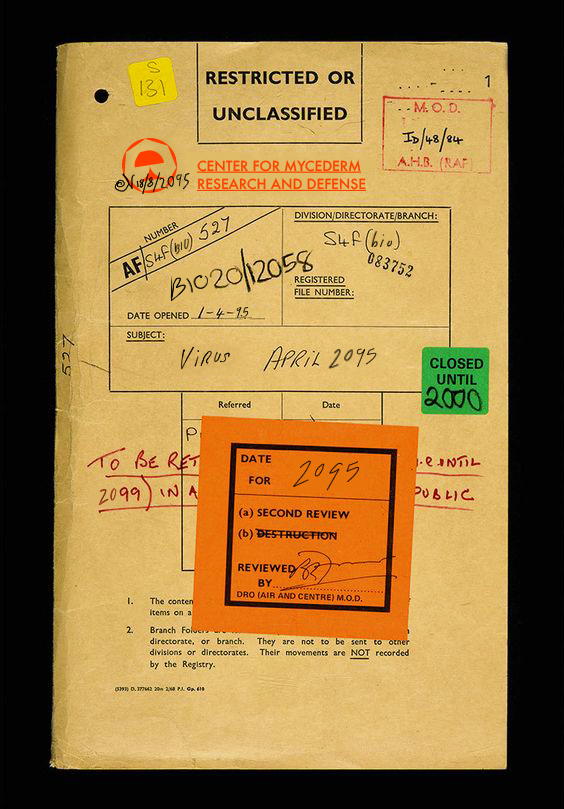 S
131
RESTRICTED OR
UNCLASSIFIED
1
M.O.D.
ID/48/84
A.H.B. (RAF)
18/8/2095
CENTER FOR MYCEDERM
RESEARCH AND DEFENSE
NUMBER
AF/S4F(bio) 527
BIO20/12058
DATE OPENED 1-4-95
DIVISION/DIRECTORATE/BRANCH:
S4F(bio)
083752
REGISTERED
FILE NUMBER:
SUBJECT:
VIRUS APRIL 2095
527
CLOSED
UNTIL
2000
Referred Date
TO BE RET UNTIL
2099) IN A PUBLIC
DATE
FOR 2095
(a) SECOND REVIEW
(b) DESTRUCTION
REVIEWED
BY
DRO (AIR AND CENTRE) M.O.D.
1. The conten
items on a
2. Branch
directorate, or branch. They are not to be sent to other
divisions or directorates. Their movements are NOT recorded
by the Registry.
(5393) D. 377662 20m 2/68 P.I. Gp. 610